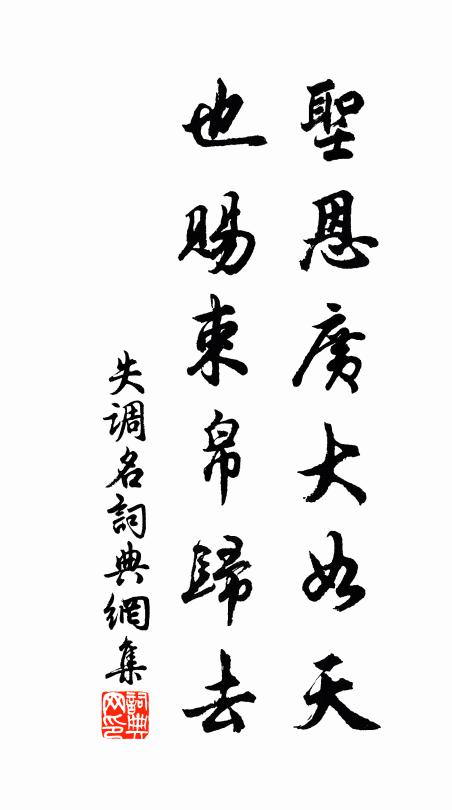 聖恩廣大如天
也賜束帛歸去
失调名詞典網集
詞典网印